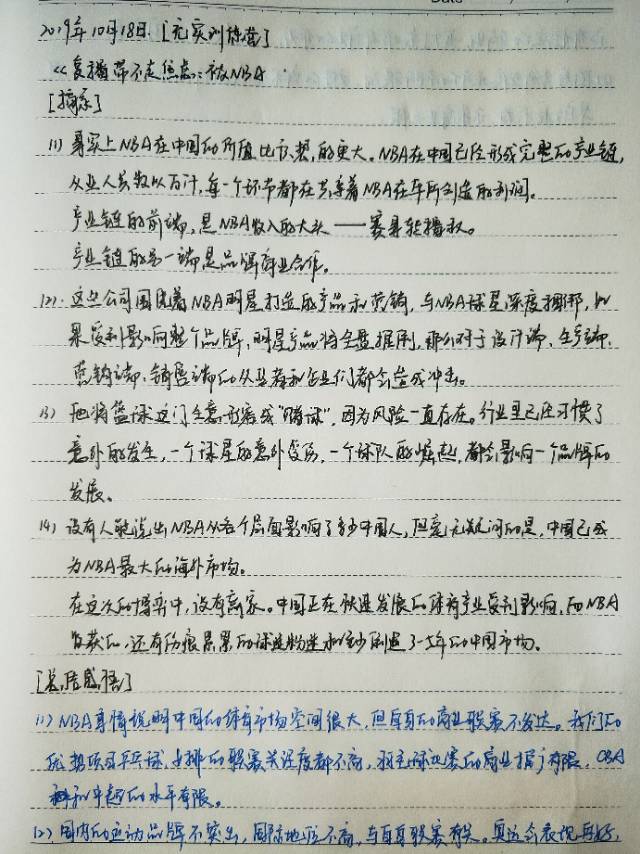 2019年10月18日.[充实训练营]
《复播带不走焦虑:被NBA
[摘录]
(1) 事实上NBA在中国的价值比你想的更大。NBA在中国已经形成完整的产业链,
从业人员数以百计,每一个环节都在共享着NBA在华所创造的利润。
产业链的前端,是NBA收入的大头——赛事转播权。
产业链的另一端是品牌商业合作。
(2).这些公司围绕着NBA明星打造的产品和营销,与NBA球星深度捆绑,如
果受到影响整个品牌、明星产品将全盘推倒,那么对于设计端、生产端、
营销端、销售端的从业者和企业们都会造成冲击。
(3) 他将篮球这门生意形容成"赌球",因为风险一直存在。行业里已经习惯了
意外的发生,一个球星的意外受伤,一个球队的崛起,都会影响一个品牌的
发展。
(4) 没有人能说出NBA从各个层面影响了多少中国人,但毫无疑问的是,中国已成
为NBA最大的海外市场。
在这次的博弈中,没有赢家。中国正在快速发展的体育产业受到影响,而NBA
收获的,还有伤痕累累的球迷和创造了三年的中国市场。
[总结感悟]
(1) NBA事情说明中国的体育市场空间很大,但自身的商业联赛不发达。我们的
优势项目乒乓球、女排的联赛关注度都不高,羽毛球比赛的商业推广有限,CBA
和中超的水平有限。
(2) 国内的运动品牌不突出,国际地位不高,与自身联赛有关。奥运会表现再好,